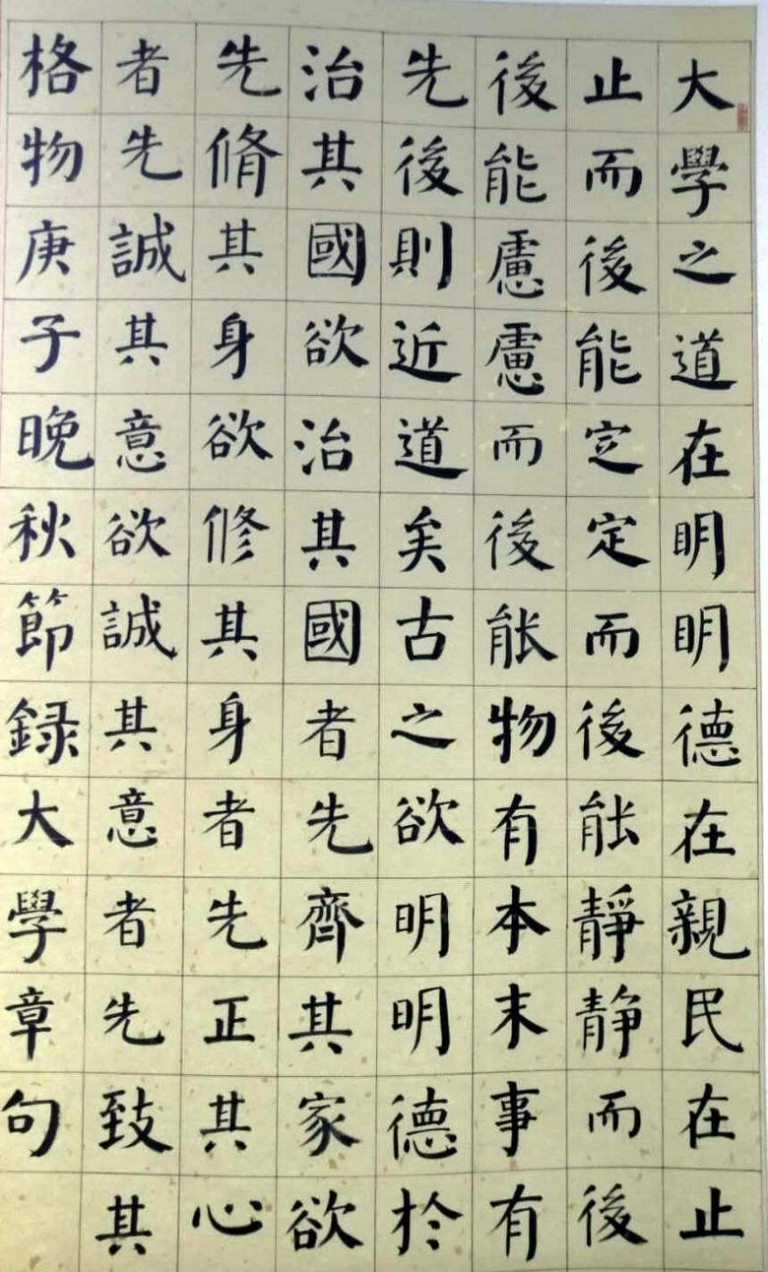 大學之道在明明德在親民在止
止而後能定定而後能靜静而後
後能慮慮而後能物有本末事有
先後則近道矣古之欲明明德於
治其國欲治其國者先齊其家欲
先脩其身欲修其身者先正其心
者先誠其意欲誠其意者先致其
格物庚子晚秋節録大學章句